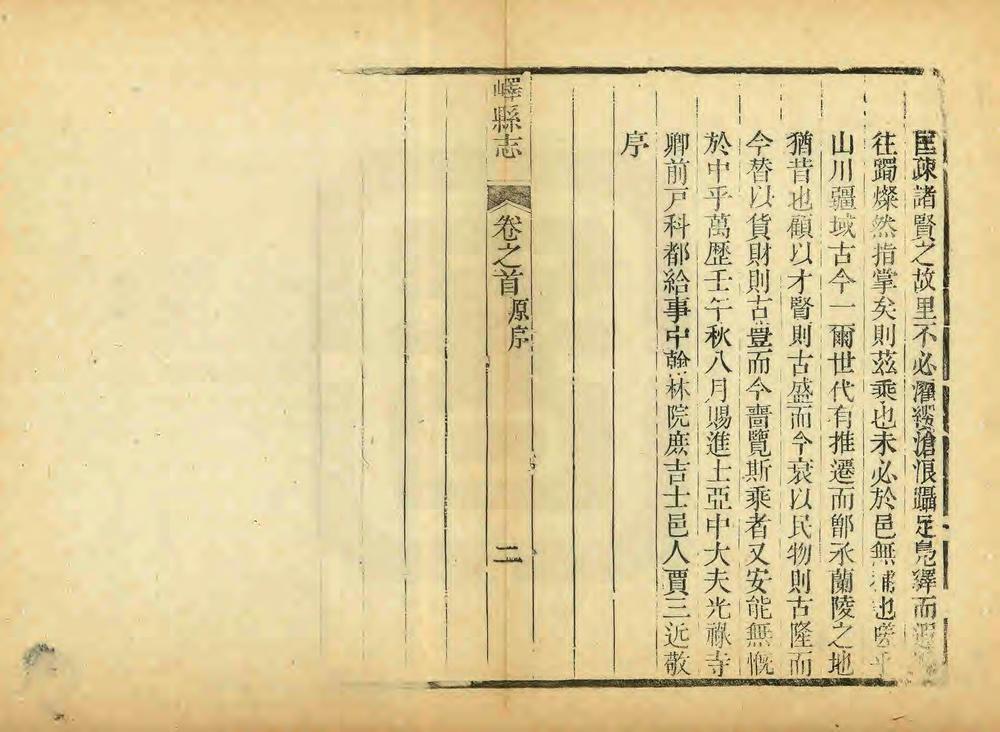 匡疎諸賢之故里不必濯纓滄浪躡足鳧繹而
往躅燦然指掌矣則茲乘也未必於邑無補也嗟乎
山川疆域古今一爾世代有推遷而鄫承蘭陵之地
猶昔也顧以才賢則古盛而今衰以民物則古隆而
今替以貨財則古豐而今嗇覽斯乘者又安能無慨
於中乎萬歷壬午秋八月賜進士亞中大夫光祿寺
卿前戸科都給事中翰林院庶吉士邑人賈三近敬
序
嶧縣志
卷之首 原序
二